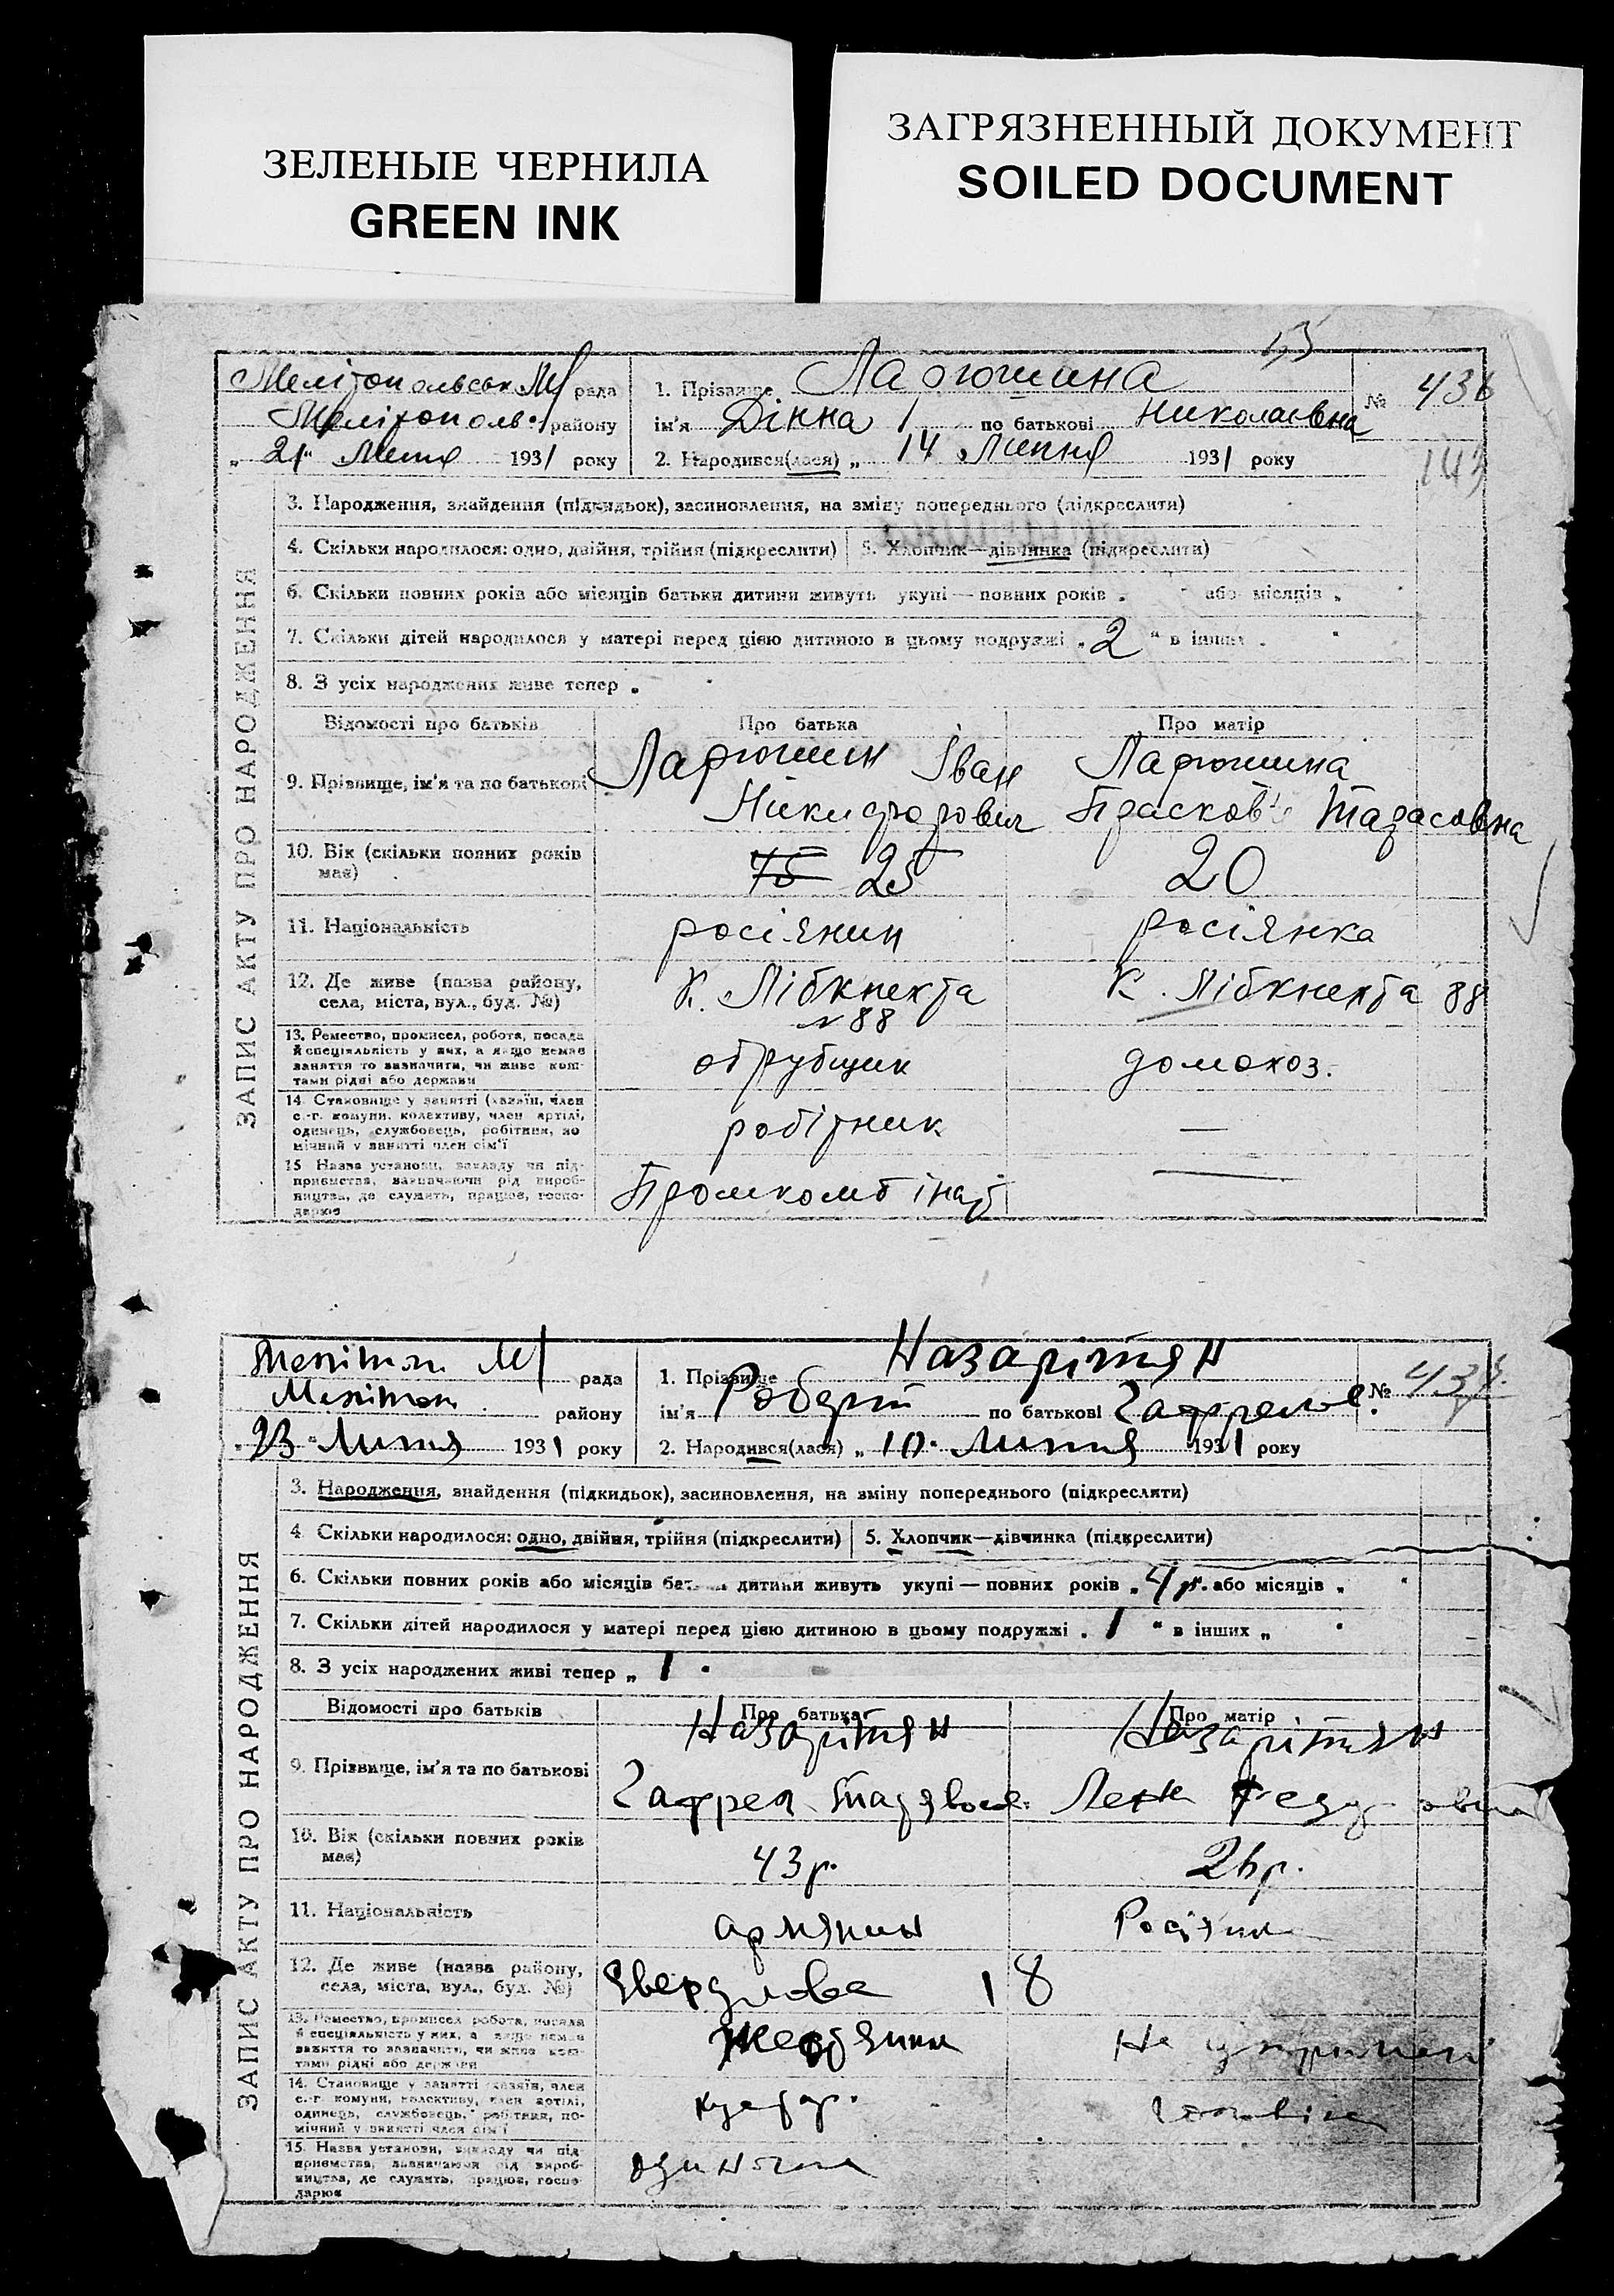 ЗЕЛЕНЫЕ ЧЕРНИЛА
GREEN INK
ЗАГРЯЗНЕННЫЙ ДОКУМЕНТ
SOILED DOCUMENT
ЗАПИС АКТУ ПРО НАРОДЖЕННЯ
Мелітопольськ М/ рада
Мелітополь. району
„21" Липня 1931 року
1. Прізвище Ларюшина
ім'я Дінна по батькові Николаевна
2. Народився(лася) „ 14 Липня 1931 року
№ 436
143
3. Народження, знайдення (підкидьок), засиновлення, на зміну попереднього (підкреслити)
4. Скільки народилося: одно, двійня, трійня (підкреслити) 5. Хлопчик—дівчинка (підкреслити)
6. Скільки повних років або місяців батьки дитини живуть укупі — повних років „ або місяців „
7. Скільки дітей народилося у матері перед цією дитиною в цьому подружжі „ 2 " в інших „
8. З усіх народжених живе тепер „
Відомості про батьків Про батька Про матір
9. Прізвище, ім'я та по батькові Ларюшин Іван Никифорович Ларюшина Прасков'я Тарасовна
10. Вік (скільки повних років має) 25 20
11. Національність росіянин росіянка
12. Де живе (назва району, села, міста, вул., буд. №) К. Лібкнехта №88 К. Лібкнехта 88
13. Ремество, промисел, робота, посада й спеціяльність у них, а якщо немає заняття то зазначити, чи живе коштами рідні або держави обрубщик домохоз.
14. Становище у занятті (хазяїн, член с.-г. комуни, колективу, член артілі, одинець, службовець, робітник, помічний у занятті член сім'ї робітник —
15. Назва установи, закладу чи підприємства, зазначаючи рід виробництва, де служить, працює, господарює Промкомбінат —
ЗАПИС АКТУ ПРО НАРОДЖЕННЯ
Мелітоп. М/ рада
Мелітоп. району
„23" Липня 1931 року
1. Прізвище Назарітян
ім'я Роберт по батькові
2. Народився(лася) „ 10 " Липня 1931 року
№ 437
3. Народження, знайдення (підкидьок), засиновлення, на зміну попереднього (підкреслити)
4. Скільки народилося: одно, двійня, трійня (підкреслити) 5. Хлопчик—дівчинка (підкреслити)
6. Скільки повних років або місяців батьки дитини живуть укупі — повних років „ 4 р. або місяців „
7. Скільки дітей народилося у матері перед цією дитиною в цьому подружжі „ 1 " в інших „
8. З усіх народжених живі тепер „ 1
Відомості про батьків Про батька Про матір
9. Прізвище, ім'я та по батькові Назарітян Назарітян
10. Вік (скільки повних років має) 43 р. 26 р.
11. Національність армянин Росіянк
12. Де живе (назва району, села, міста, вул., буд. №) Свердлова 18
13. Ремество, промисел робота, посада й спеціяльність у них, а якщо немає заняття то зазначити, чи живе коштами рідні або держави
14. Становище у занятті хазяїн, член с.-г. комуни, колективу, член артілі, одинець, службовець, робітник, помічний у занятті член сім'ї
15. Назва установи, закладу чи підприємства, зазначаючи рід виробництва, де служить, працює, господарює